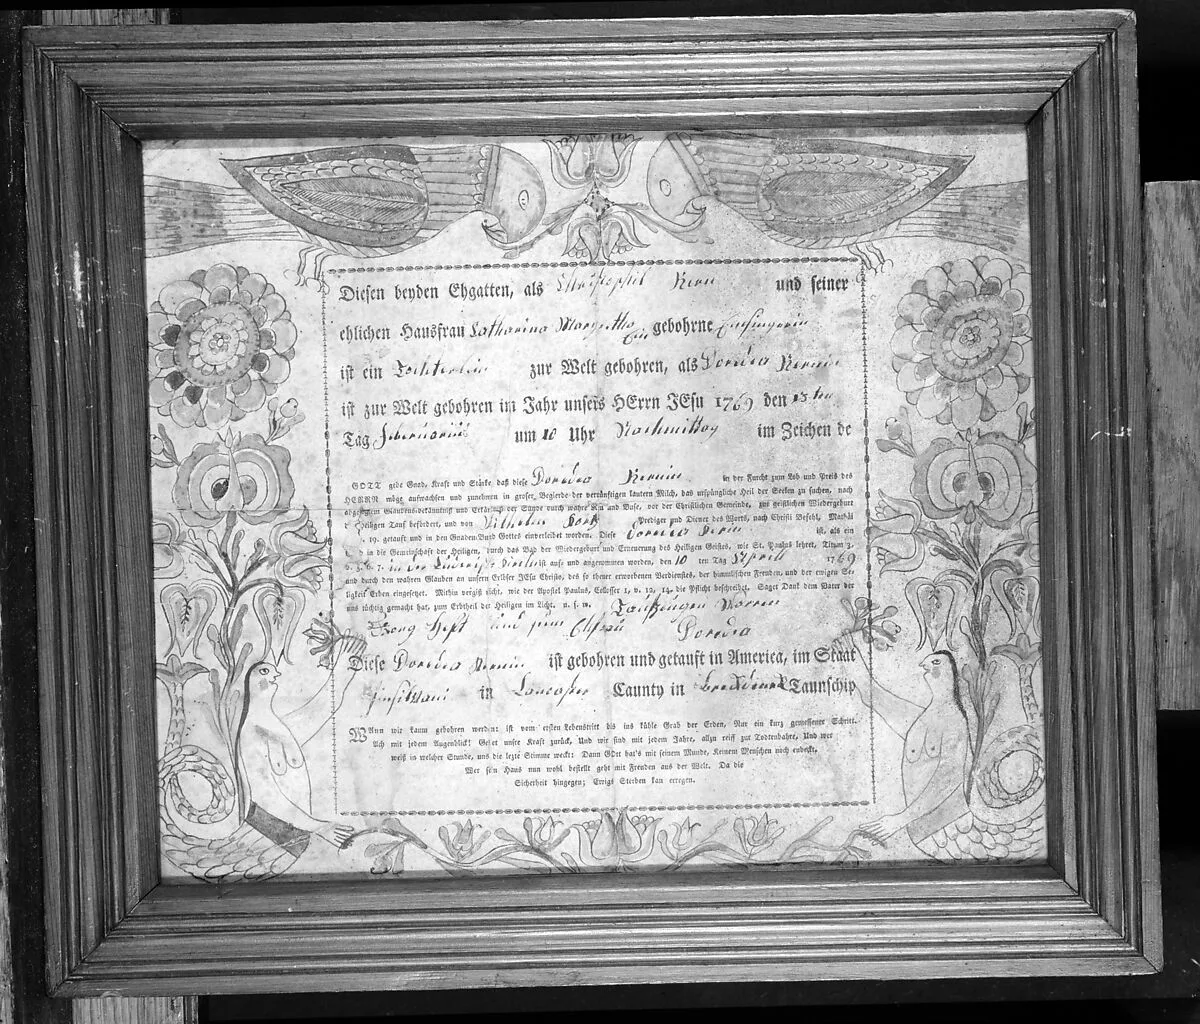 Diesen beyden Ehgatten, als Christophel Kern und seiner
ehlichen Hausfrau Catharina Margretha Ein gebohrne
ist ein Tochterlein zur Welt gebohren, als Doredea Kernin
ist zur Welt gebohren im Jahr unsers HErrn JEsu 1769 den 15 ten
Tag Februarius um 10 Uhr Nachmittag im Zeichen de
GOTT gebe Gnad, Kraft und Stärke, daß diese Doredea Kernin in der Furcht zum Lob und Preis des
HERRN möge aufwachsen und zunehmen in groser Begierde der vernünftigen lautern Milch, das ursprüngliche Heil der Seelen zu suchen, nach
abgelegtem Glaubens-bekäntniß und Erklärung der Sünde durch wahre Reu und Buse, vor der Christlichen Gemeinde, zur geistlichen Wiedergeburt
d heiligen Tauf befördert, und von Wilhelm Prediger und Diener des Worts, nach Christi Befehl, Mathäi
19. getauft und in den Gnaden-Bund Gottes einverleibet worden. Diese Doredea Kernin ist, als ein
d in die Gemeinschaft der Heiligen, durch das Bad der Wiedergeburt und Erneuerung des Heiligen Geistes, wie St. Paulus lehret, Titum 3.
v. 5. 6. 7. in der Kirche ist aufs und angenommen worden, den 10 ten Tag Aprill 1769
und durch den wahren Glauben an unsern Erlöser JEsu Christo, des so theuer erworbenen Verdienstes, der himmlischen Freuden, und der ewigen Se
ligkeit Erben eingesetzt. Mithin vergiß nicht, wie der Apostel Paulus, Colosser 1, v. 12, 14. die Pflicht beschreibet. Saget Dank dem Vater der
uns tüchtig gemacht hat, zum Erbtheil der Heiligen im Licht. u. s. w. Taufzeugen Warren
Georg Heft und seine Ehfrau Doredea
Diese Doredea Kernin ist gebohren und getauft in America, im Staat
in Lancaster Caunty in Taunschip
WAnn wir kaum gebohren werden: ist vom ersten Lebenstritt bis ins kühle Grab der Erden, Nur ein kurz gemessener Schritt.
Ach mit jedem Augenblick! Gehet unsre Kraft zurück, Und wir sind mit jedem Jahre, allzu reiff zur Todtenbahre, Und wer
weiß in welcher Stunde, uns die lezte Stimme weckt: Dann GOtt hat's mit seinem Munde, Keinem Menschen noch endeckt,
Wer sein Haus nun wohl bestellt geht mit Freuden aus der Welt. Da die
Sicherheit hingegen; Ewigs Sterben kan erregen.